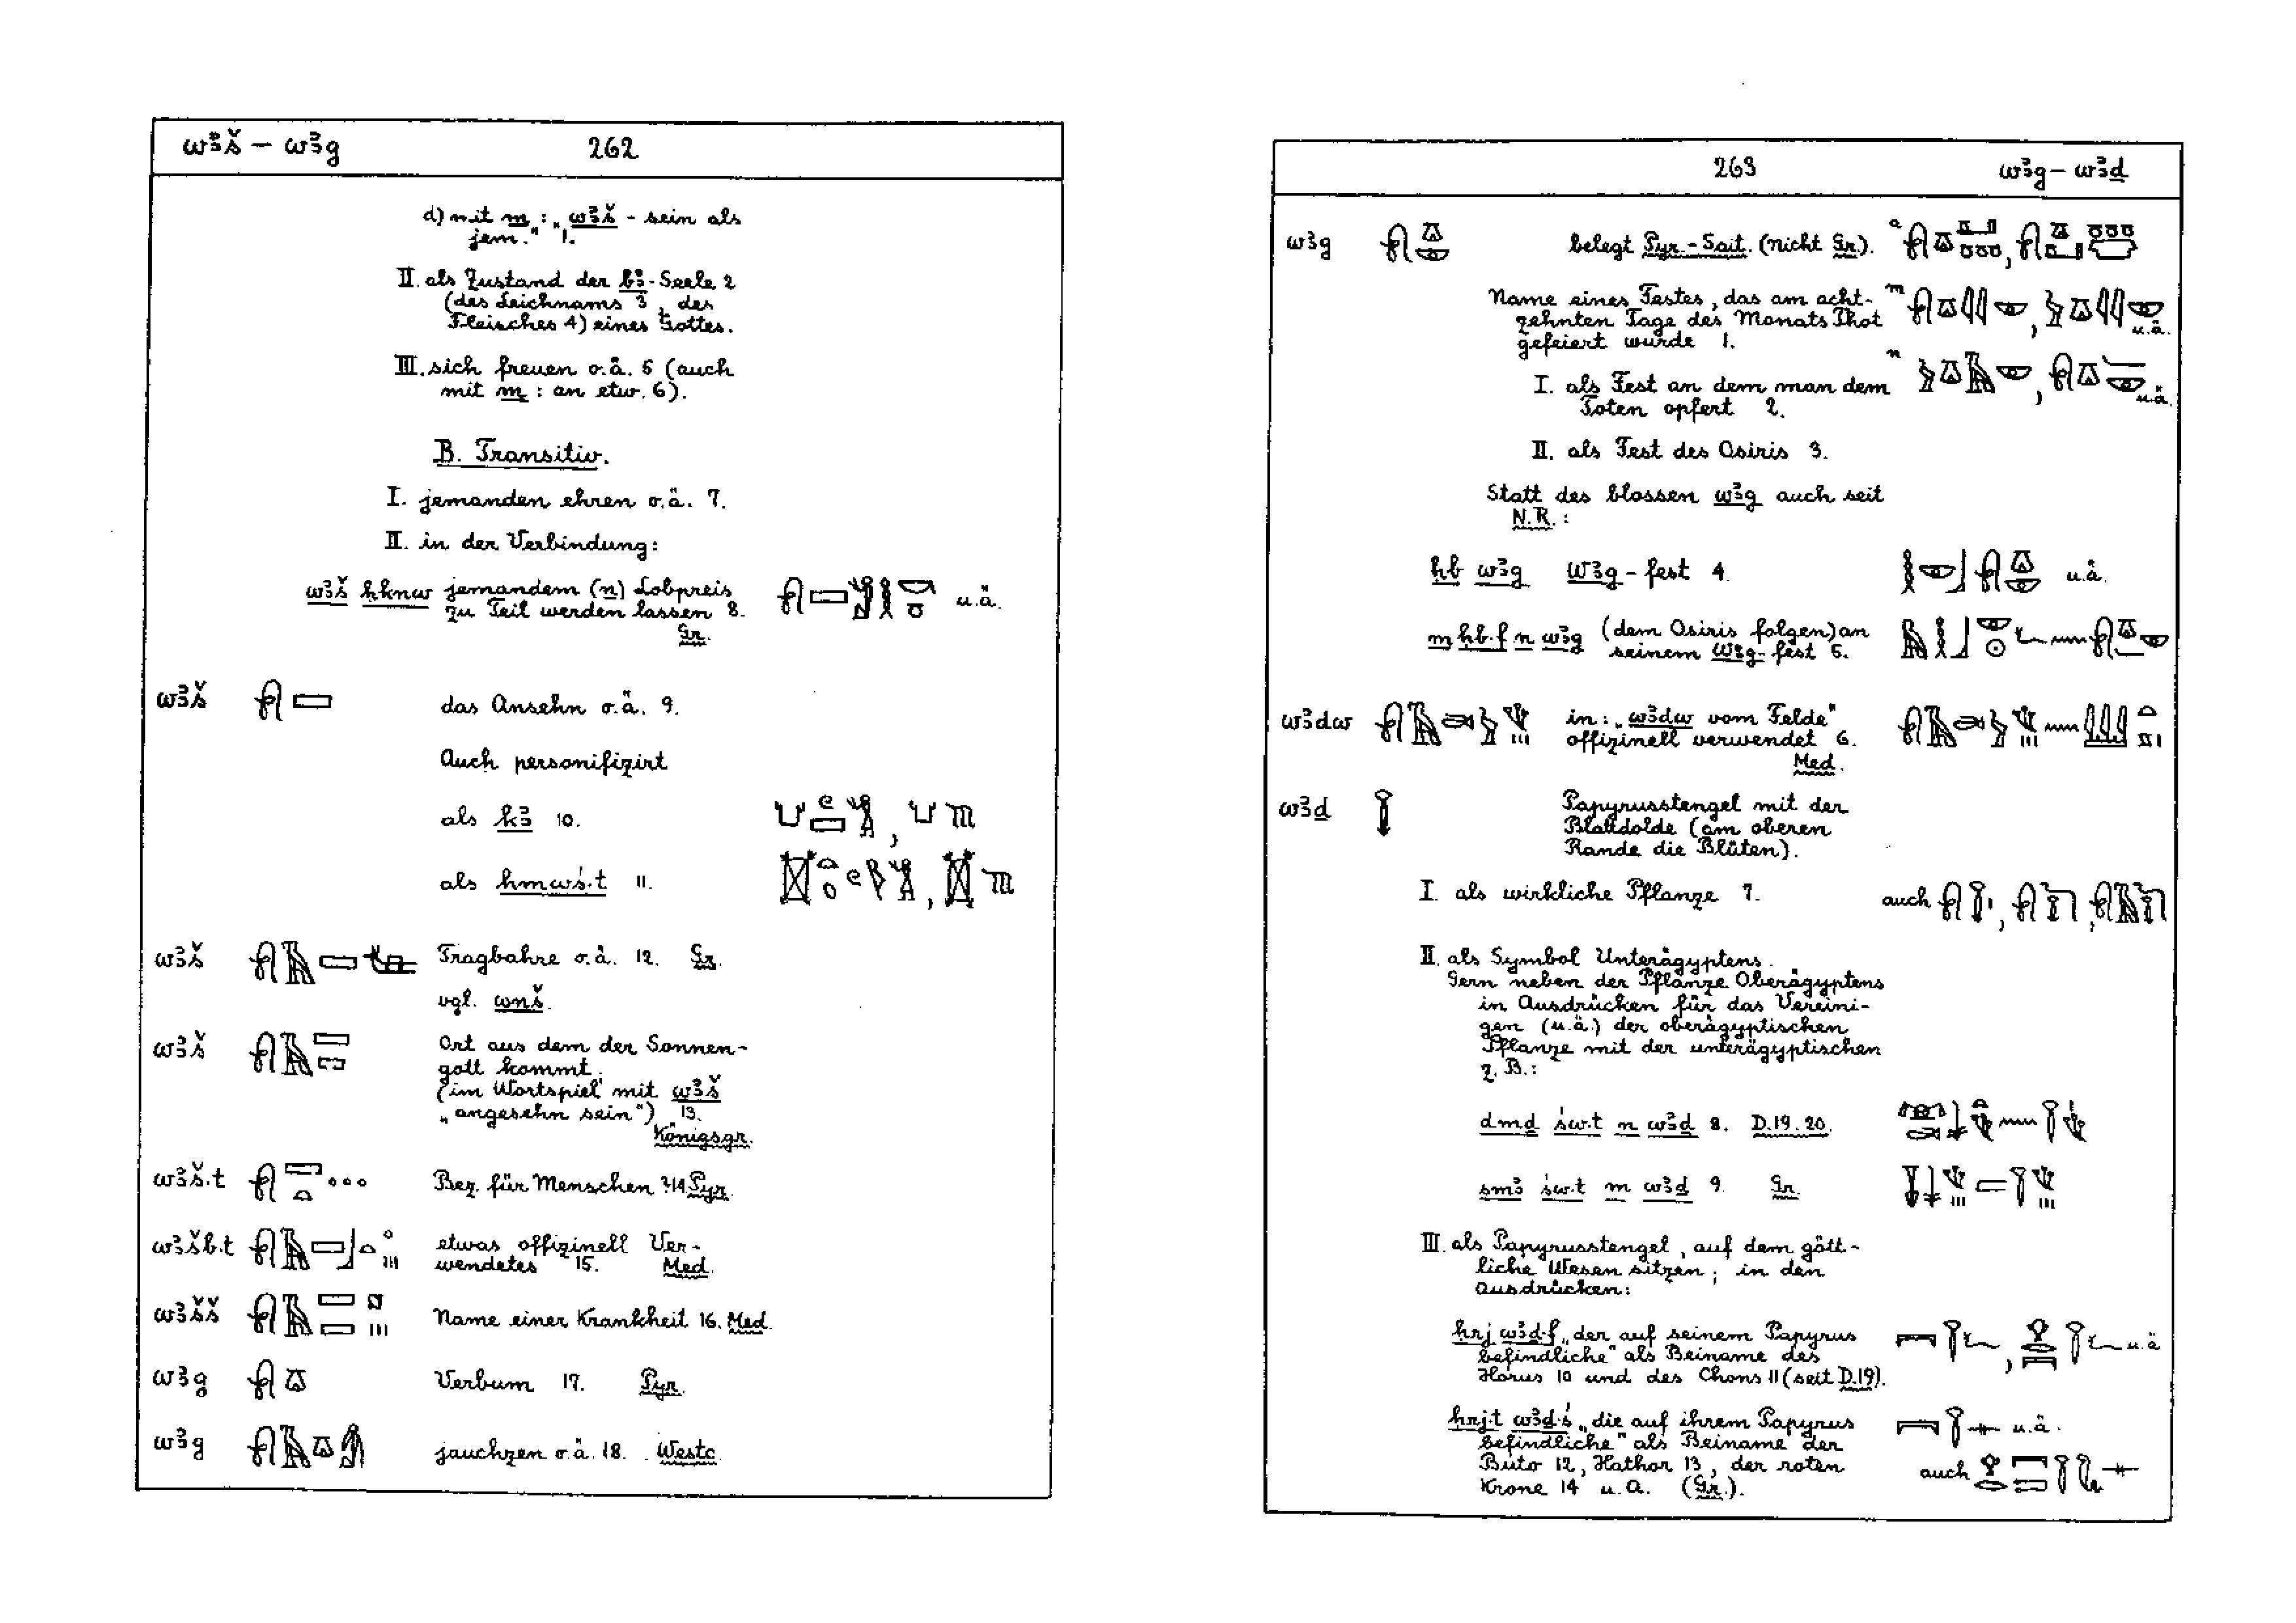 wꜣš – wꜣg 262
d) mit m : „wꜣš - sein als
jem." 1.
II. als Zustand der bꜣ-Seele 2
(des Leichnams 3, des
Fleisches 4) eines Gottes.
III. sich freuen o.ä. 5 (auch
mit m : an etw. 6).
B. Transitiv.
I. jemanden ehren o.ä. 7.
II. in der Verbindung:
wꜣš ḥknw jemandem (n) Lobpreis
zu Teil werden lassen 8. u.ä.
Gr.
wꜣš das Ansehn o.ä. 9.
Auch personifizirt
als kꜣ 10.
als ḥmwś·t 11.
wꜣš Tragbahre o.ä. 12. Gr.
vgl. wnš.
wꜣš Ort aus dem der Sonnen-
gott kommt
(im Wortspiel mit wꜣš
„angesehn sein") 13.
Königsgr.
wꜣš·t Bez. für Menschen ? 14. Pyr.
wꜣšb·t etwas offizinell Ver-
wendetes 15. Med.
wꜣšš Name einer Krankheit 16. Med.
wꜣg Verbum 17. Pyr.
wꜣg jauchzen o.ä. 18. Westc.
263 wꜣg – wꜣḏ
wꜣg belegt Pyr.-Sait. (nicht Gr.).
Name eines Festes, das am acht-
zehnten Tage des Monats Thot u.ä.
gefeiert wurde 1.
I. als Fest an dem man dem
Toten opfert 2. u.ä.
II. als Fest des Osiris 3.
Statt des blossen wꜣg auch seit
N.R. :
ḥb wꜣg Wꜣg-fest 4. u.ä.
m ḥb·f n wꜣg (dem Osiris folgen) an
seinem Wꜣg-fest 5.
wꜣdw in: „wꜣdw vom Felde"
offizinell verwendet 6.
Med.
wꜣḏ Papyrusstengel mit der
Blattdolde (am oberen
Rande die Blüten).
I. als wirkliche Pflanze 7. auch
II. als Symbol Unterägyptens.
Gern neben der Pflanze Oberägyptens
in Ausdrücken für das Vereini-
gen (u.ä.) der oberägyptischen
Pflanze mit der unterägyptischen
z.B.:
dmḏ św·t n wꜣḏ 8. D.19.20.
smꜣ św·t m wꜣḏ 9. Gr.
III. als Papyrusstengel, auf dem gött-
liche Wesen sitzen; in den
Ausdrücken:
ḥrj wꜣḏ·f „der auf seinem Papyrus
befindliche" als Beiname des u.ä
Horus 10 und des Chons 11 (seit D.19).
ḥrj·t wꜣḏ·ś „die auf ihrem Papyrus u.ä.
befindliche" als Beiname der
Buto 12, Hathor 13, der roten auch
Krone 14 u.a. (Gr.).